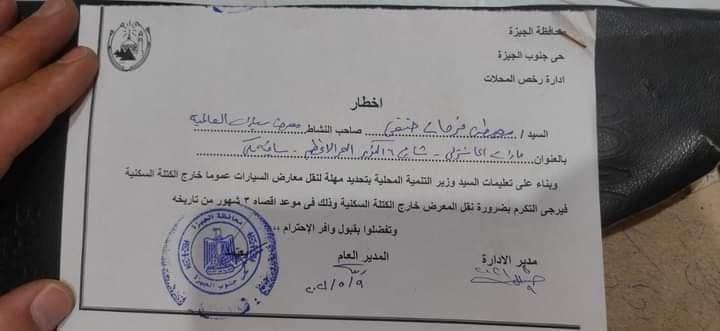 محافظة الجيزة
حى جنوب الجيزة
ادارة رخص المحلات
اخطار
السيد / مصطفى فرحات حنفى صاحب النشاط معرض سيارات العالمية
بالعنوان - شارع - ساقية مكى
وبناء على تعليمات السيد وزير التنمية المحلية بتحديد مهلة لنقل معارض السيارات عموما خارج الكتلة السكنية
فيرجى التكرم بضرورة نقل المعرض خارج الكتلة السكنية وذلك فى موعد اقصاه ٣ شهور من تاريخه
وتفضلوا بقبول وافر الإحترام ،،
مدير الادارة
المدير العام
يعتمد
محافظة الجيزة
حى جنوب الجيزة